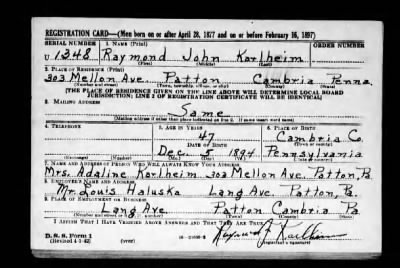 REGISTRATION CARD—(Men born on or after April 28, 1877 and on or before February 16, 1897)
SERIAL NUMBER 1. NAME (Print) ORDER NUMBER
U 1348 Raymond John Karlheim
(First) (Middle) (Last)
2. PLACE OF RESIDENCE (Print)
303 Mellon Ave. Patton Cambria Penna.
(Number and street) (Town, township, village, or city) (County) (State)
[THE PLACE OF RESIDENCE GIVEN ON THE LINE ABOVE WILL DETERMINE LOCAL BOARD
JURISDICTION; LINE 2 OF REGISTRATION CERTIFICATE WILL BE IDENTICAL]
3. MAILING ADDRESS
Same
[Mailing address if other than place indicated on line 2. If same insert word same]
4. TELEPHONE 5. AGE IN YEARS 6. PLACE OF BIRTH
47 Cambria Co.
DATE OF BIRTH (Town or county)
Dec. 5 1894 Pennsylvania
(Exchange) (Number) (Mo.) (Day) (Yr.) (State or country)
7. NAME AND ADDRESS OF PERSON WHO WILL ALWAYS KNOW YOUR ADDRESS
Mrs. Adaline Karlheim 303 Mellon Ave. Patton, Pa
8. EMPLOYER'S NAME AND ADDRESS
Mr. Louis Haluska Lang Ave. Patton, Pa.
9. PLACE OF EMPLOYMENT OR BUSINESS
Lang Ave. Patton Cambria Pa
(Number and street or R. F. D. number) (Town) (County) (State)
I AFFIRM THAT I HAVE VERIFIED ABOVE ANSWERS AND THAT THEY ARE TRUE.
D. S. S. Form 1 Raymond J Karlheim
(Revised 4-1-42) (over) (Registrant's signature)